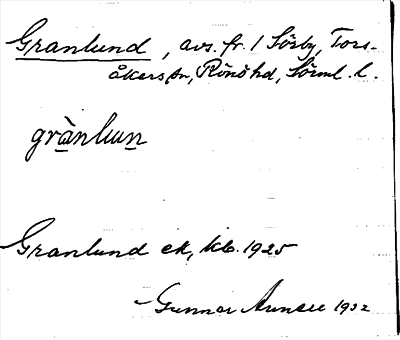 Granlund, avs. fr. 1 Sörby, Tors-
åkers sn, Rönö hd, Sörml. l.
grànlun
Granlund ek, kb. 1925
Gunnar 1932